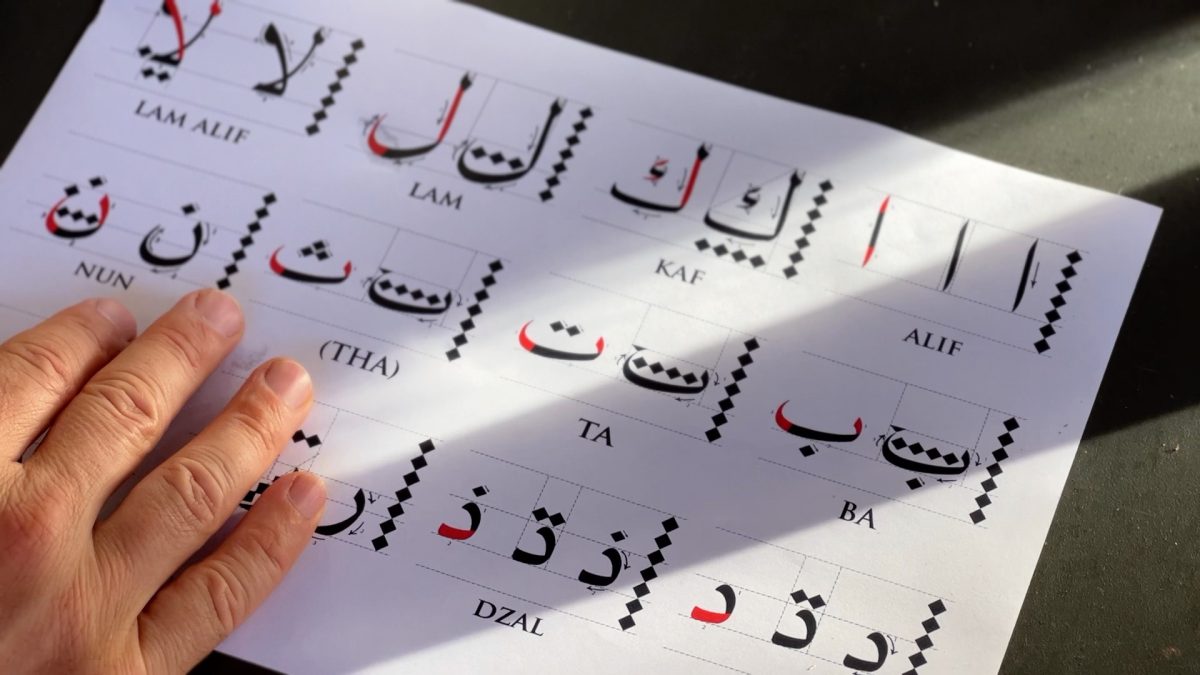 ا ا ا
ALIF
ك ك
KAF
ل ل
LAM
لا لا
LAM ALIF
ب ب
BA
ت ت
TA
ث ث
(THA)
ن ن
NUN
د د د
ذ ذ ذ
DZAL
ر